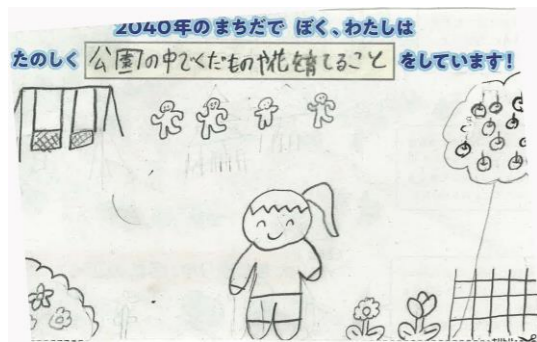 2040年のまちだで ぼく、わたしは
たのしく 公園の中でくだものや花を育てること をしています！